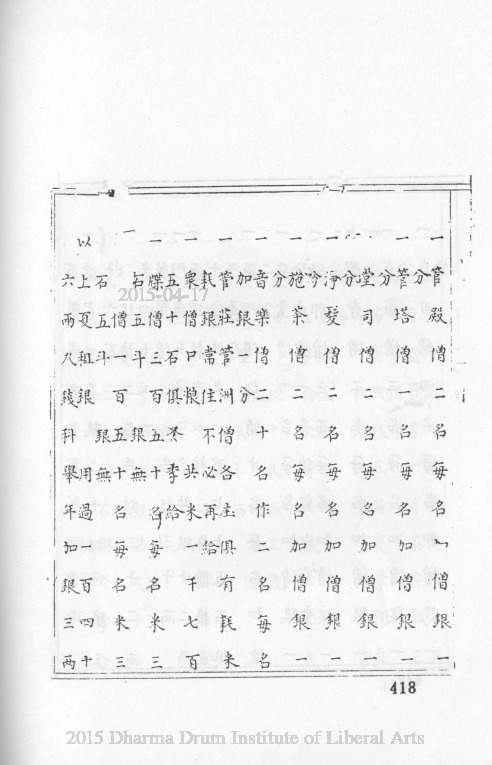 一管殿僧二名每名加僧銀一
分
一管塔僧一名每名加僧銀一
分
一堂司僧二名每名加僧銀一
分
一淨髮僧二名每名加僧銀一
分
一施茶僧二名每名加僧銀一
分
一音樂僧二十名作二名每名
加銀一分
一管莊管洲僧各庄俱有耗米
耗銀常住不必再給
一衆僧口糧共米一千七百
五十石俱冬季給
一牒僧三百五十名每名米三
石五斗銀無
一僧一百五十名每名米三
石五斗銀無
以上夏租銀用過一百四十
六兩八錢科舉年加銀三兩
418
2015-04-17
2015 Dharma Drum Institute of Liberal Arts